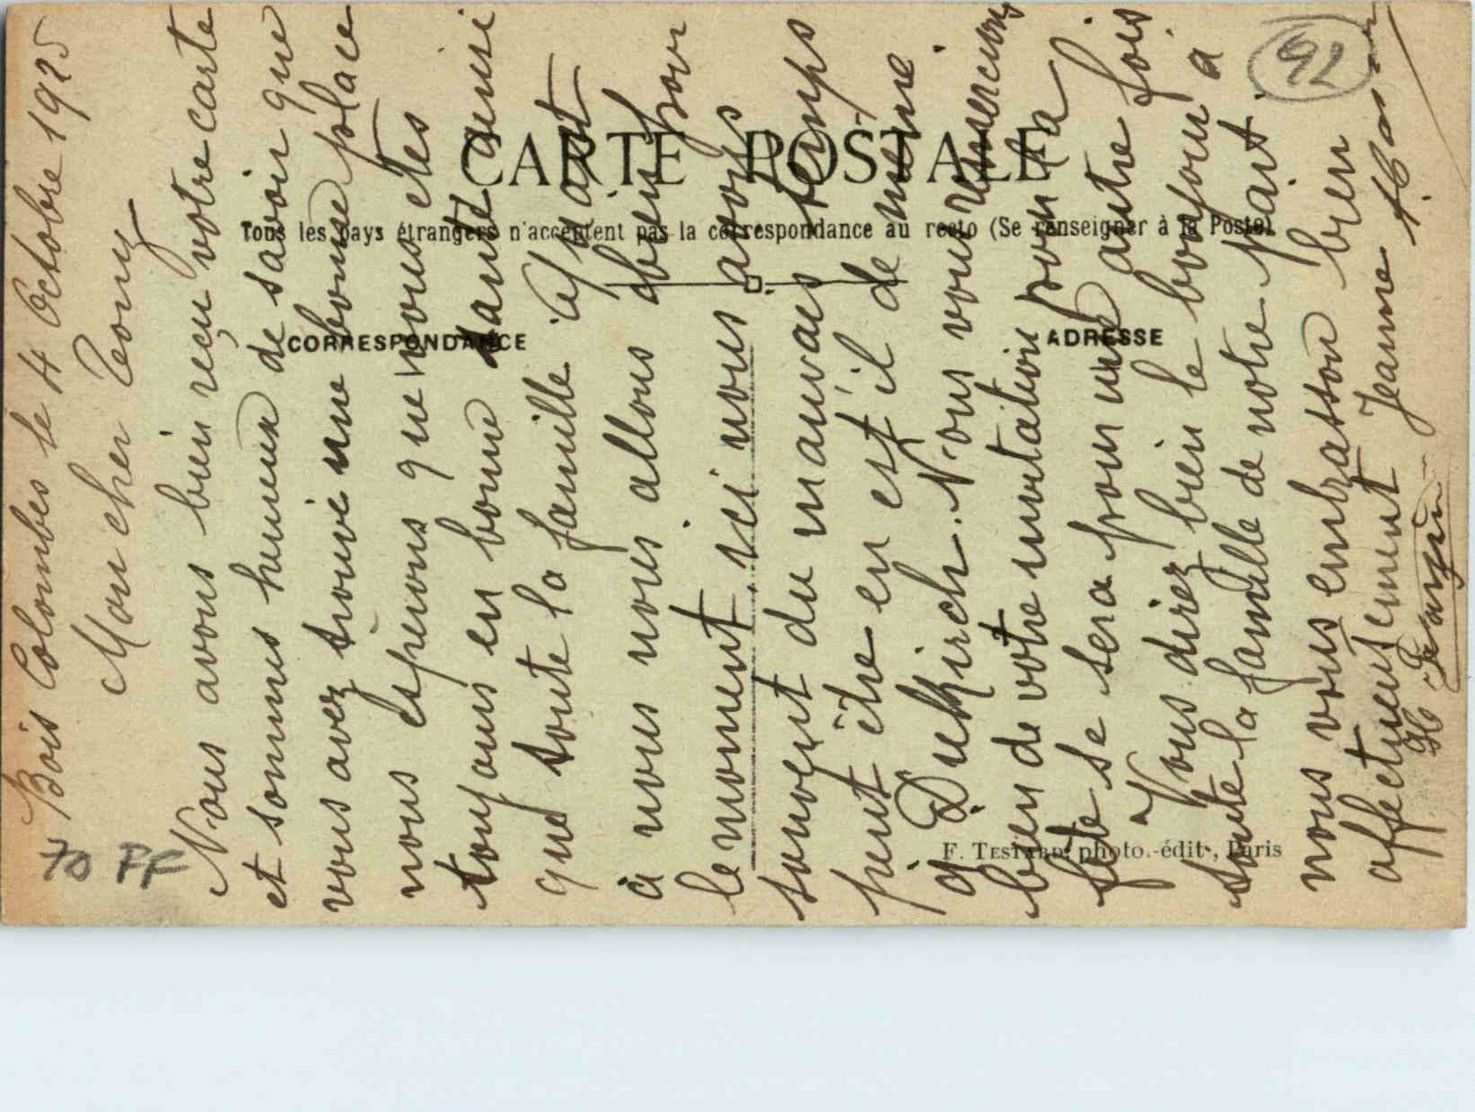 CARTE POSTALE
Tous les pays étrangers n'acceptent pas la correspondance au recto (Se renseigner à la Poste)
CORRESPONDANCE
ADRESSE
F. TESTARD, photo.-édit., Paris
92
70 FF
Bois Colombes le 4 Octobre 1925
Mon cher Tony
Nous avons bien reçu votre carte
et sommes heureux de savoir que
vous avez trouvé une bonne place
nous esperons que vous etes
toujours en bonne santé ainsi
que toute la famille quant
à nous nous allons bien pour
le moment, ici nous avons
souvent du mauvais temps
peut être en est il de même
à Dulkirch. Nous vous remercions
bien de votre invitation pour la
fête se sera pour une autre fois
Vous direz bien le bonjour à
toute la famille de notre part
nous vous embrasson bien
affectueusement Jeanne